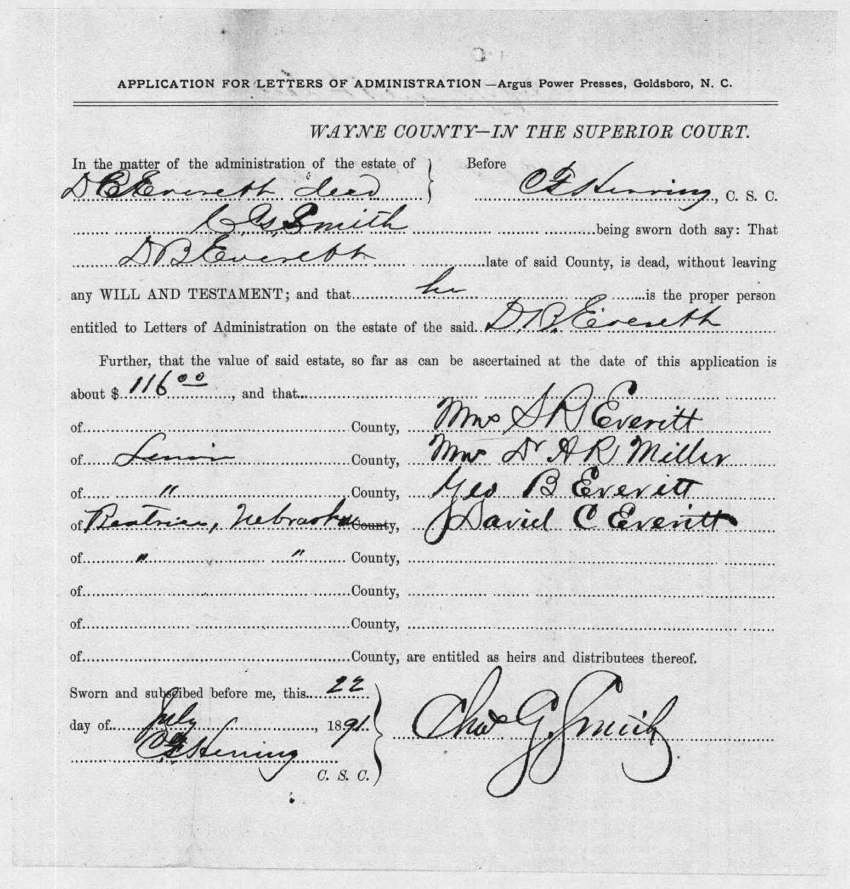 APPLICATION FOR LETTERS OF ADMINISTRATION—Argus Power Presses, Goldsboro, N. C.
WAYNE COUNTY—IN THE SUPERIOR COURT.
In the matter of the administration of the estate of } Before
D B Everett dead C F Herring, C. S. C.
C. G. Smith being sworn doth say: That
D B Everett late of said County, is dead, without leaving
any WILL AND TESTAMENT; and that he is the proper person
entitled to Letters of Administration on the estate of the said D. B. Everett
Further, that the value of said estate, so far as can be ascertained at the date of this application is
about $ 116 00, and that
of County, Mrs S R Everitt
of Lenoir County, Mrs Dr A R Miller
of " County, Geo B Everitt
of Beatrice, Nebraska County, David C Everitt
of " " County,
of County,
of County,
of County, are entitled as heirs and distributees thereof.
Sworn and subscibed before me, this 22
day of July, 1891 Chas G. Smith
C F Herring
C. S. C.